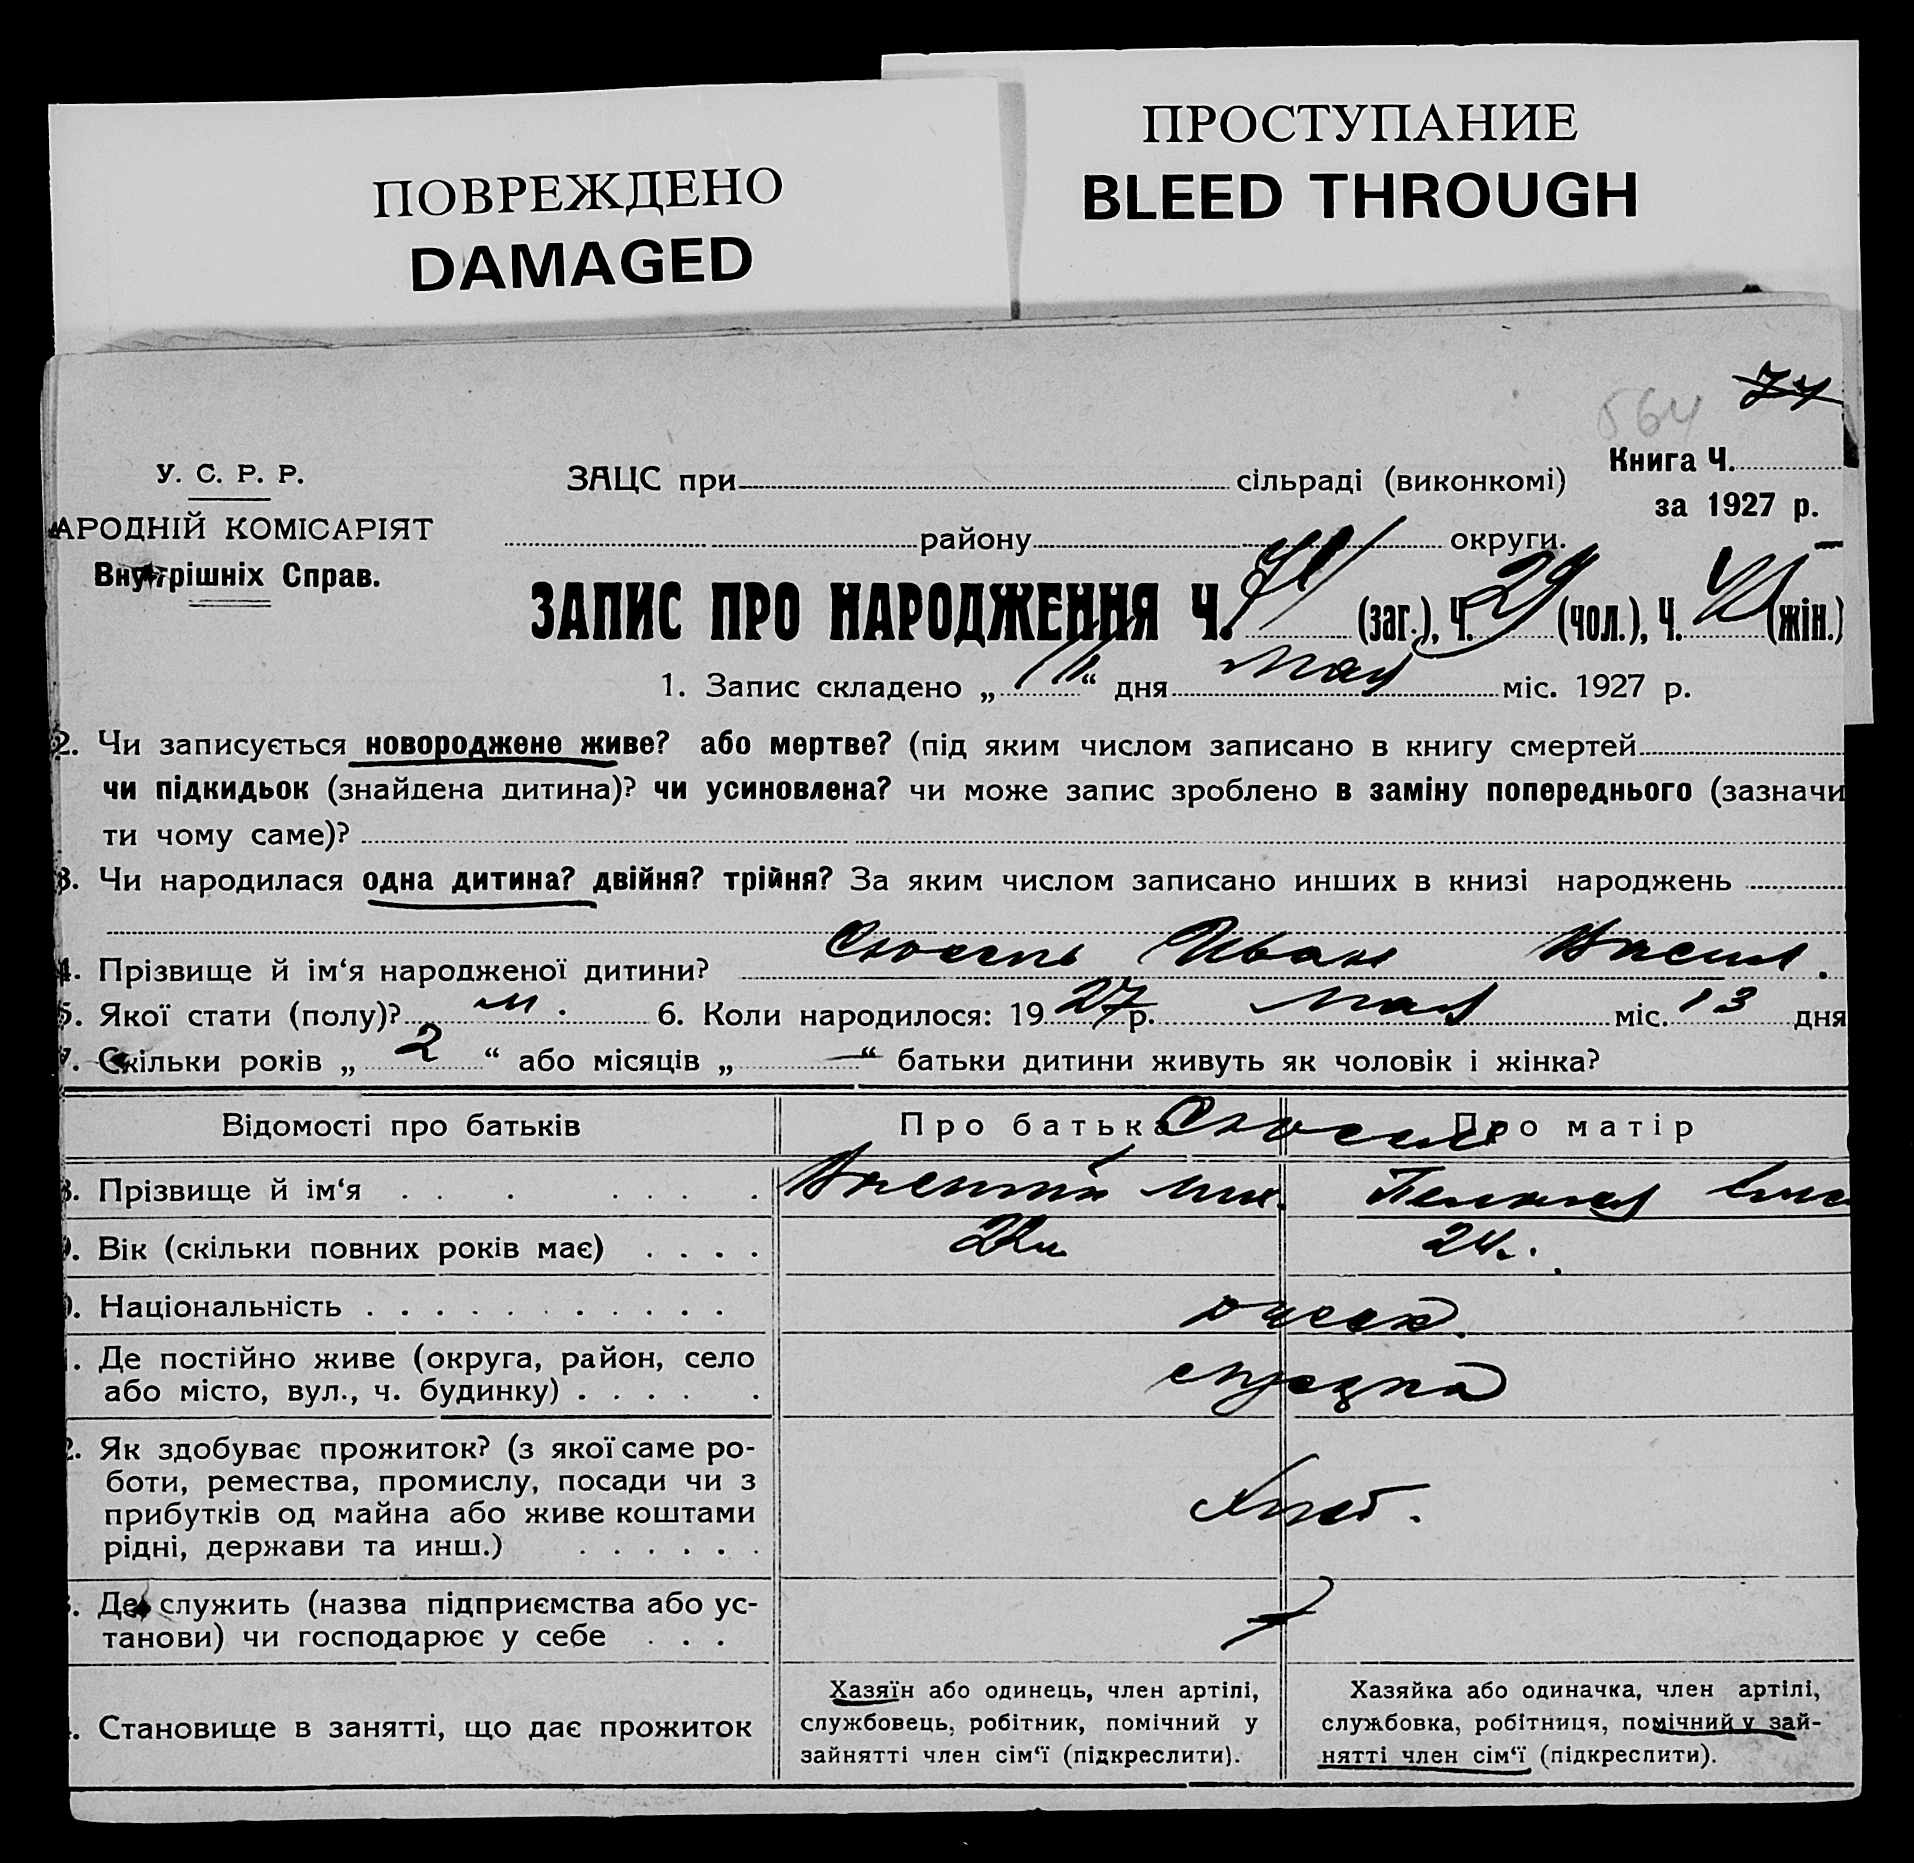 ПРОСТУПАНИЕ
BLEED THROUGH
ПОВРЕЖДЕНО
DAMAGED
74
564
Книга Ч.
за 1927 р.
У. С. Р. Р.
АРОДНІЙ КОМІСАРІЯТ
Внутрішніх Справ.
ЗАЦС при сільраді (виконкомі)
району округи.
ЗАПИС ПРО НАРОДЖЕННЯ Ч. (заг.), Ч. 29 (чол.), Ч. (жін.)
1. Запис складено „ “ дня мая міс. 1927 р.
2. Чи записується новороджене живе? або мертве? (під яким числом записано в книгу смертей
чи підкидьок (знайдена дитина)? чи усиновлена? чи може запис зроблено в заміну попереднього (зазначи
ти чому саме)?
3. Чи народилася одна дитина? двійня? трійня? За яким числом записано инших в книзі народжень
4. Прізвище й ім‘я народженої дитини? Иван Васил.
5. Якої стати (полу)? м. 6. Коли народилося: 1927 р. мая міс. 13 дня
7. Скільки років „ 2 “ або місяців „ — “ батьки дитини живуть як чоловік і жінка?
Відомості про батьків Про батька Про матір
8. Прізвище й ім‘я
9. Вік (скільки повних років має) 24.
. Національність
. Де постійно живе (округа, район, село
або місто, вул., ч. будинку)
2. Як здобуває прожиток? (з якої саме ро-
боти, ремества, промислу, посади чи з
прибутків од майна або живе коштами
рідні, держави та инш.)
Хліб.
. Де служить (назва підприємства або ус-
танови) чи господарює у себе
. Становище в занятті, що дає прожиток
Хазяїн або одинець, член артілі,
службовець, робітник, помічний у
зайнятті член сім‘ї (підкреслити).
Хазяйка або одиначка, член артілі,
службовка, робітниця, помічний у зай-
нятті член сім‘ї (підкреслити).